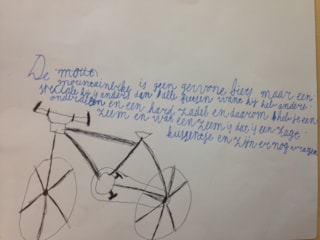 De mooie
mountainbike is geen gewone fiets maar een
speciale hij is anders dan alle fietsen want hij heb andere
onderdelen en een hard zadel en daarom heb je een
zeem en wat een zeem is dat is een zacht
kussentje en zijn er nog vragen